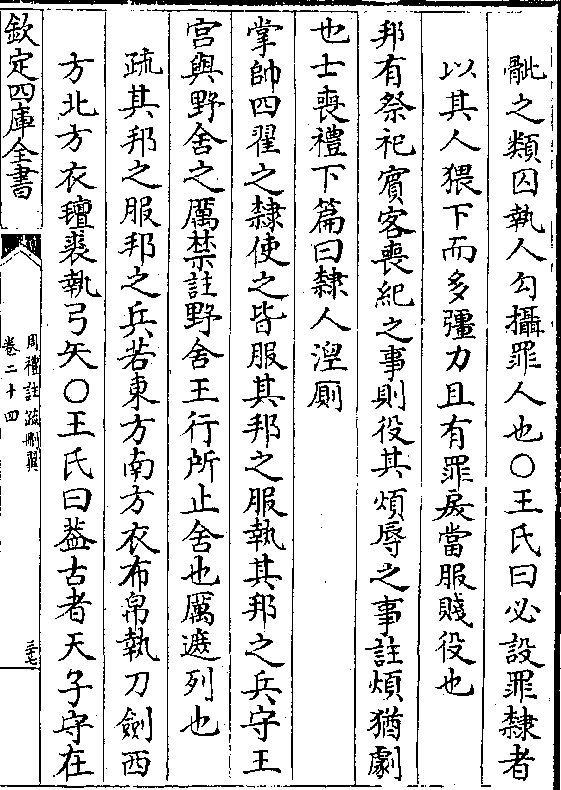 骴之類囚執人勾攝罪人也○王氏曰必設罪隸者
以其人猥下而多彊力且有罪戾當服賤役也
邦有祭祀賓客喪紀之事則役其煩辱之事註煩猶劇
也士喪禮下篇曰隸人湼厠
掌帥四翟之隸使之皆服其邦之服執其邦之兵守王
宮與野舍之厲禁註野舍王行所止舍也厲遮列也
疏其邦之服邦之兵若東方南方衣布帛執刀劍西
方北方衣氊裘執弓矢○王氏曰葢古者天子守在
欽定四庫全書
周禮註疏刪翼
卷二十四
三十七